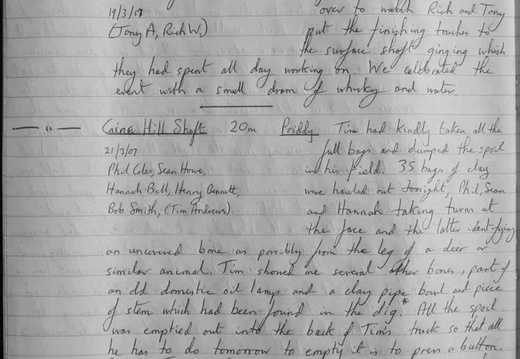 19/3/07 over to watch Rich and Tony
(Tony A, Rich W.) put the finishing touches to
the surface shaft ginging which
they had spent all day working on. We celebrated the
event with a small dram of whisky and water.
— " — Caine Hill Shaft 20m Priddy Tim had kindly taken all the
21/3/07 full bags and dumped the spoil
Phil Coles, Sean Howe, in his field. 35 bags of clay
Hannah Bell, Henry Bennett, were hauled out tonight, Phil, Sean
Bob Smith, (Tim Andrews) and Hannah taking turns at
the face and the latter identifying
an uncovered bone as possibly from the leg of a deer or
similar animal. Tim showed me several other bones, part of
an old domestic oil lamp and a clay pipe bowl and piece
of stem which had been found in the dig.* All the spoil
was emptied out into the back of Tim's truck so that all
he has to do tomorrow to empty it is to press a button.